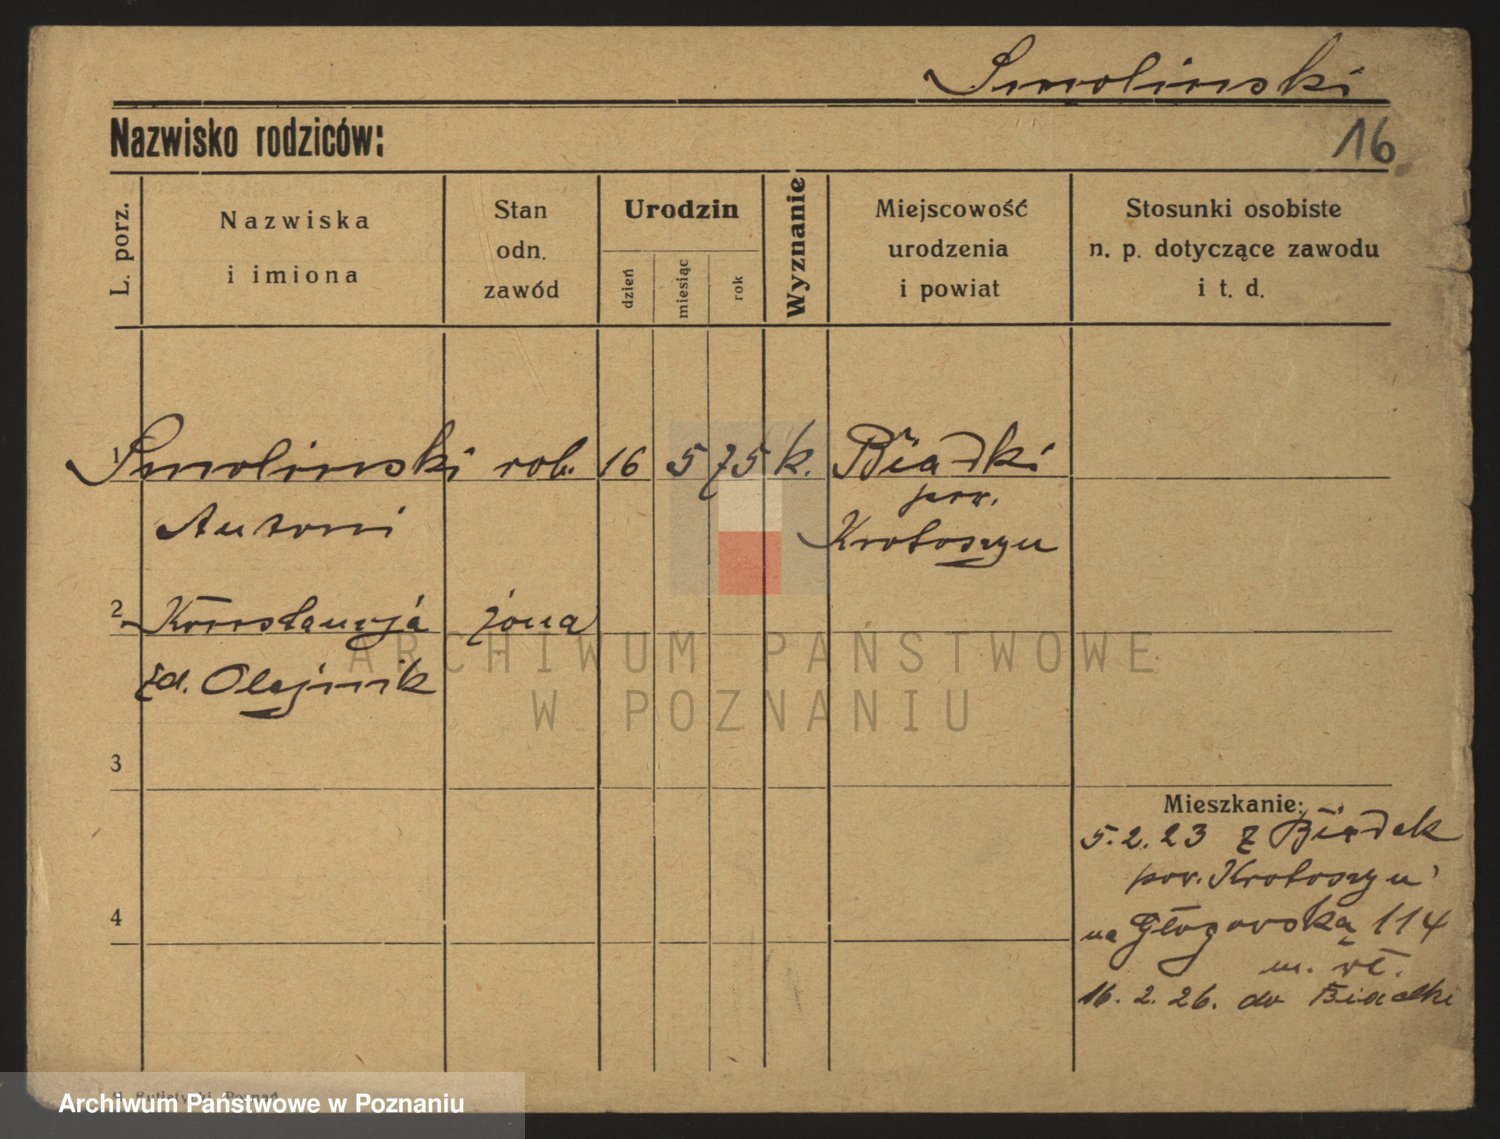 Smolinski
Nazwisko rodziców:
16
L. porz.
Nazwiska
i imiona
Stan
odn.
zawód
Urodzin
dzień
miesiąc
rok
Wyznanie
Miejscowość
urodzenia
i powiat
Stosunki osobiste
n. p. dotyczące zawodu
i t. d.
1 Smolinski rob. 16 5 75 k. Biadki
Antoni pow.
Krotoszyn
2 Konstancja żona
zd. Olejnik
ARCHIWUM PAŃSTWOWE
W POZNANIU
3
Mieszkanie:
5.2.23 z Biadek
pow. Krotoszyn
4
na Głogowską 114
m. wł.
16. 2. 26. do Biadki
Poznań
Archiwum Państwowe w Poznaniu